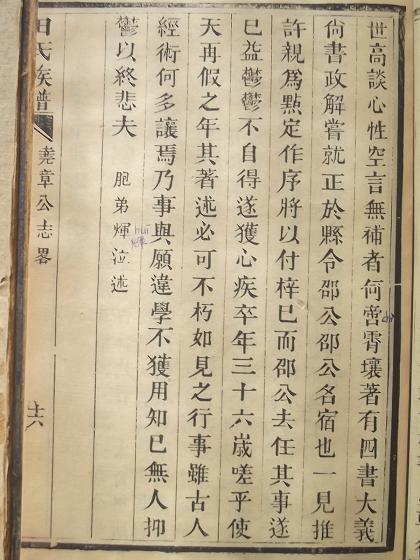 世高談心性空言無補者何啻霄壤著有四書大義
尙書政解嘗就正於縣令邵公邵公名宿也一見推
許親爲點定作序將以付梓巳而邵公去任其事遂
巳益鬱鬱不自得遂獲心疾卒年三十六歲嗟乎使
天再假之年其著述必可不朽如見之行事雖古人
經術何多讓焉乃事與願違學不獲用知巳無人抑
鬱以終悲夫
胞弟煇泣述
hui
田氏族譜
堯章公志畧
十六